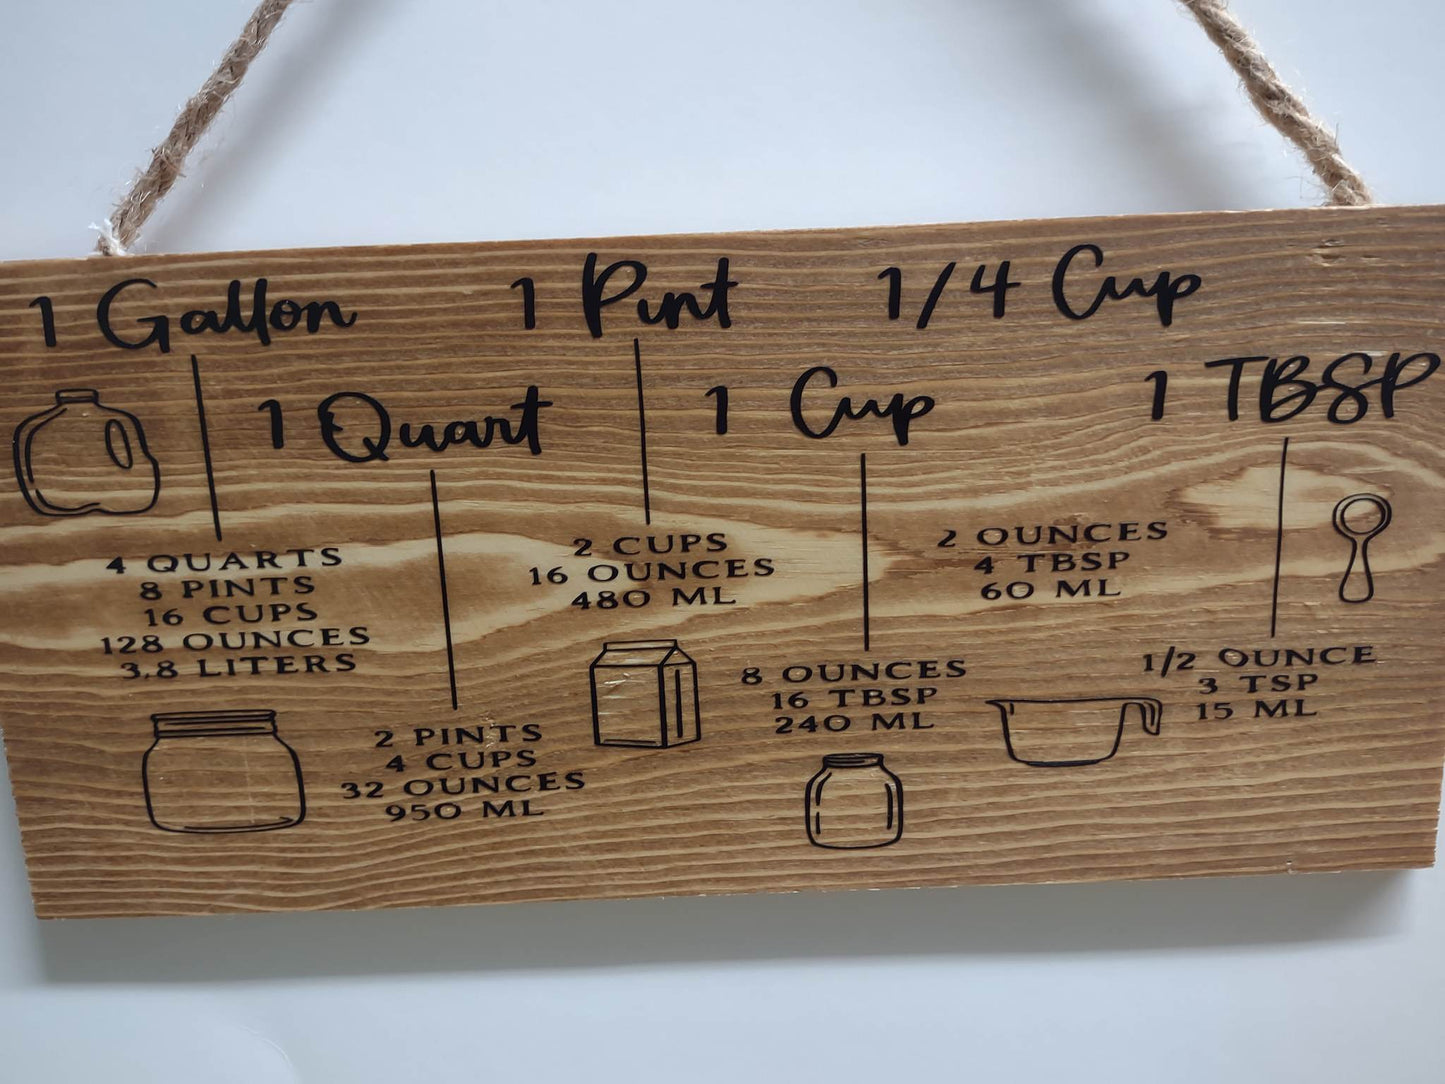 1 Gallon
4 QUARTS
8 PINTS
16 CUPS
128 OUNCES
3.8 LITERS
1 Quart
2 PINTS
4 CUPS
32 OUNCES
950 ML
1 Pint
2 CUPS
16 OUNCES
480 ML
1 Cup
8 OUNCES
16 TBSP
240 ML
1/4 Cup
2 OUNCES
4 TBSP
60 ML
1 TBSP
1/2 OUNCE
3 TSP
15 ML